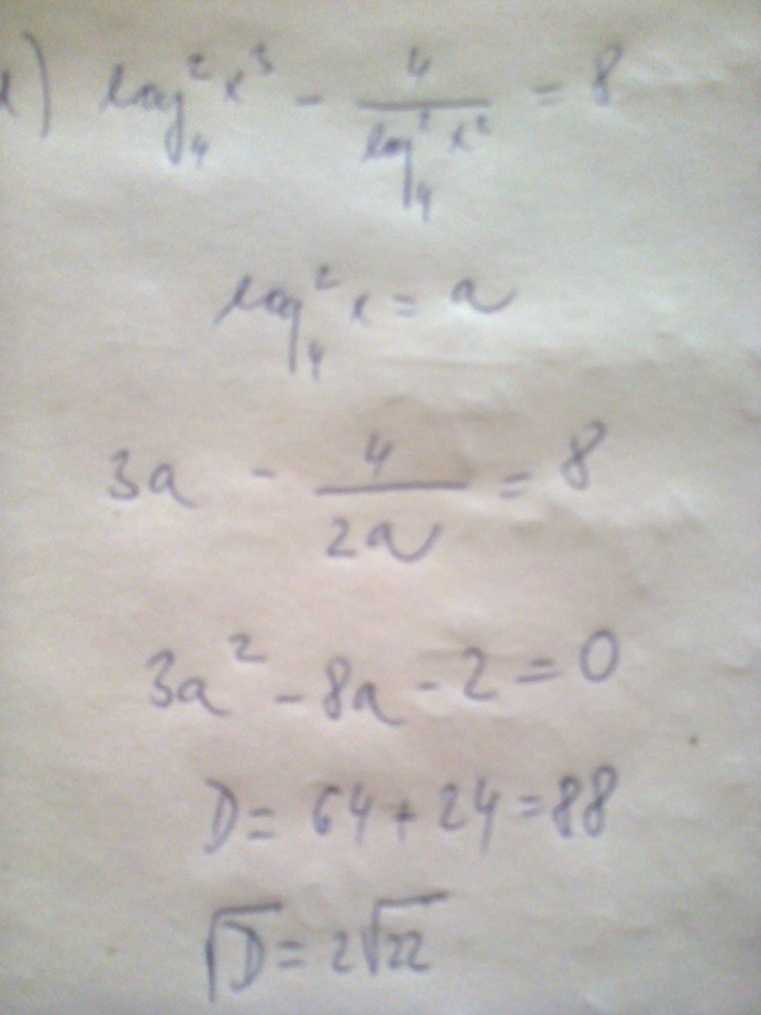 log₄² x³ - 4/(log₄² x²) = 8
log₄² x = a
3a - 4/(2a) = 8
3a² - 8a - 2 = 0
D = 64 + 24 = 88
√D = 2√22